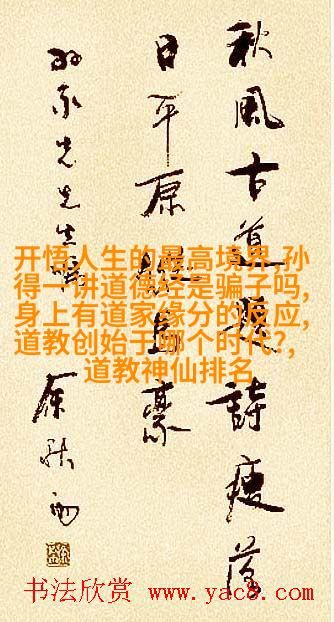 秋風古道題詩瘦落
日平原縱馬豪
家先生
余秋雨
开悟人生的最高境界,孙
得一讲道德经是骗子吗,
身上有道家缘分的反应,
道教创始于哪个时代?,
道教神仙排名
书法欣赏 www.yac8.com